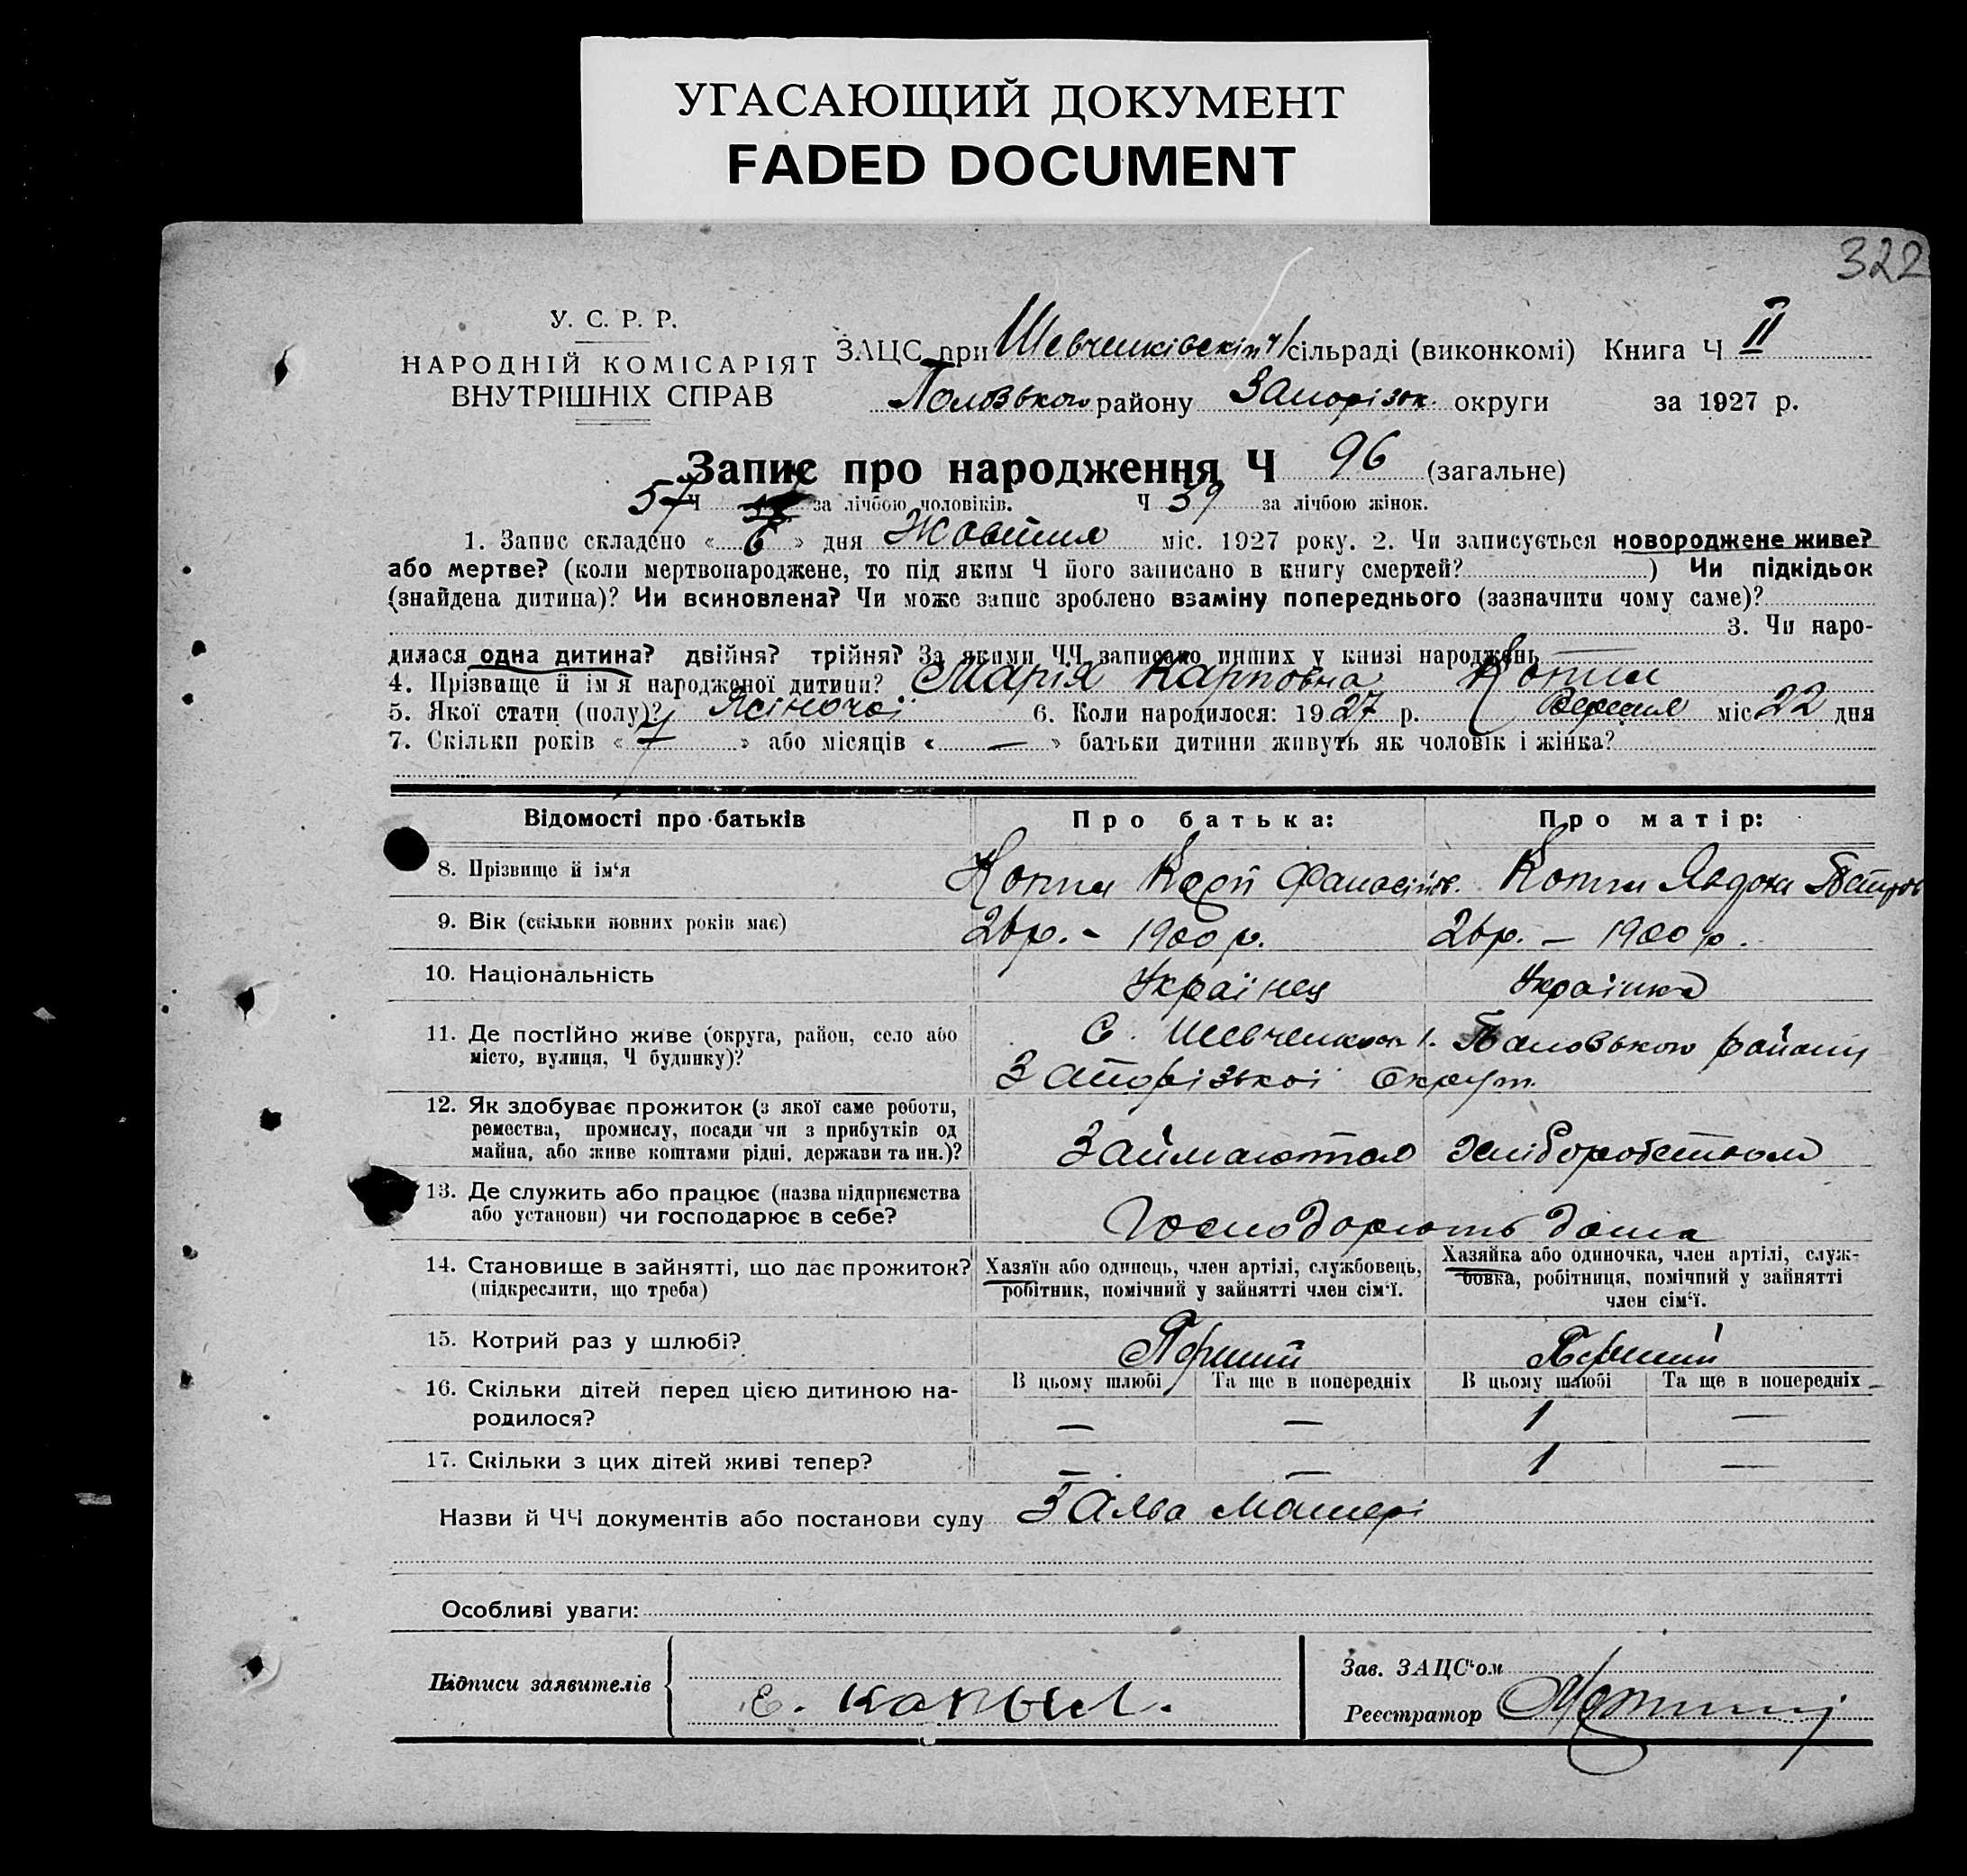 УГАСАЮЩИЙ ДОКУМЕНТ
FADED DOCUMENT
322
У. С. Р. Р.
НАРОДНІЙ КОМІСАРІЯТ
ВНУТРІШНІХ СПРАВ
ЗАЦС при Шевченківскім сільраді (виконкомі) Книга Ч II
району Запорізок. округи за 1927 р.
Запис про народження Ч 96 (загальне)
57 Ч за лічбою чоловіків. Ч 39 за лічбою жінок.
1. Запис складено « 6 » дня Жовтня міс. 1927 року. 2. Чи записується новороджене живе?
або мертве? (коли мертвонароджене, то під яким Ч його записано в книгу смертей? ) Чи підкідьок
(знайдена дитина)? Чи всиновлена? Чи може запис зроблено взаміну попереднього (зазначити чому саме)?
3. Чи наро-
дилася одна дитина? двійня? трійня? За якими ЧЧ записано инших у книзі народжень —
4. Прізвище й ім'я народженої дитини? Марія Карповна
5. Якої стати (полу)? Жіночої 6. Коли народилося: 1927 р. Вересня міс 22 дня
7. Скільки років « » або місяців « — » батьки дитини живуть як чоловік і жінка?
Відомості про батьків Про батька: Про матір:
8. Прізвище й ім'я Карп Явдоха
9. Вік (скільки повних років має) 26 р. - 1900 р. 26 р. — 1900 р.
10. Національність Українец Українка
11. Де постійно живе (округа, район, село або С. району
місто, вулиця, Ч будинку)? Запорізької Округи
12. Як здобуває прожиток (з якої саме роботи,
ремества, промислу, посади чи з прибутків од
майна, або живе коштами рідні, держави та ин.)? Займаются хліборобством
13. Де служить або працює (назва підприємства
або установи) чи господарює в себе? Господорють дома
14. Становище в зайнятті, що дає прожиток? Хазяїн або одинець, член артілі, службовець, Хазяйка або одиночка, член артілі, служ-
(підкреслити, що треба) робітник, помічний у зайнятті член сім'ї. бовка, робітниця, помічний у зайнятті
член сім'ї.
15. Котрий раз у шлюбі? Перший Перший
16. Скільки дітей перед цією дитиною на- В цьому шлюбі Та ще в попередніх В цьому шлюбі Та ще в попередніх
родилося? — — 1 —
17. Скільки з цих дітей живі тепер? — — 1 —
Назви й ЧЧ документів або постанови суду Заява матері
Особливі уваги:
Підписи заявителів Зав. ЗАЦС'ом
Е. Копыл. Реєстратор